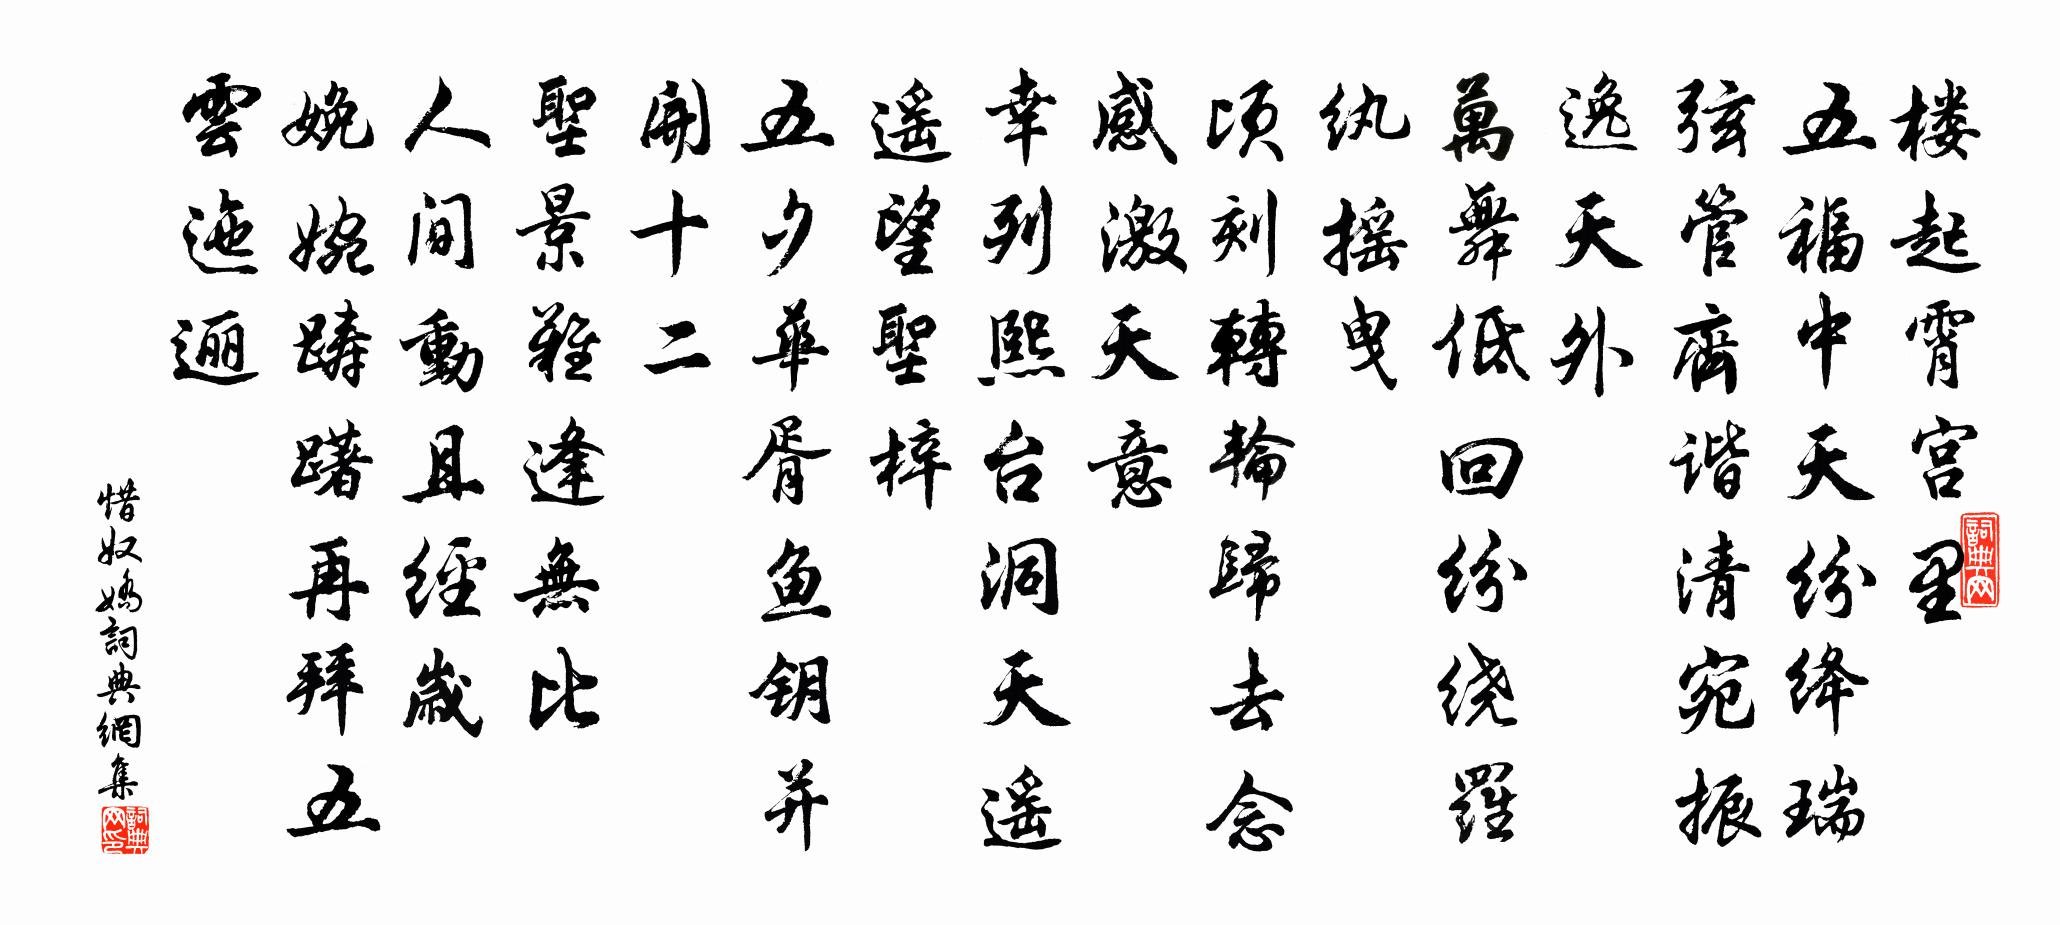 楼起霄宫里
五福中天纷绛瑞
弦管齊谐清宛振
逸天外
萬舞低回纷绕羅
纨摇曳
顷刻轉輪歸去念
感激天意
幸列熙台洞天遥
遥望聖梓
五夕華胥鱼钥并
開十二
聖景難逢無比
人间動且經歲
娩婉躊躇再拜五
雲迤逦
惜奴嬌詞典網集
詞典网
詞典网印